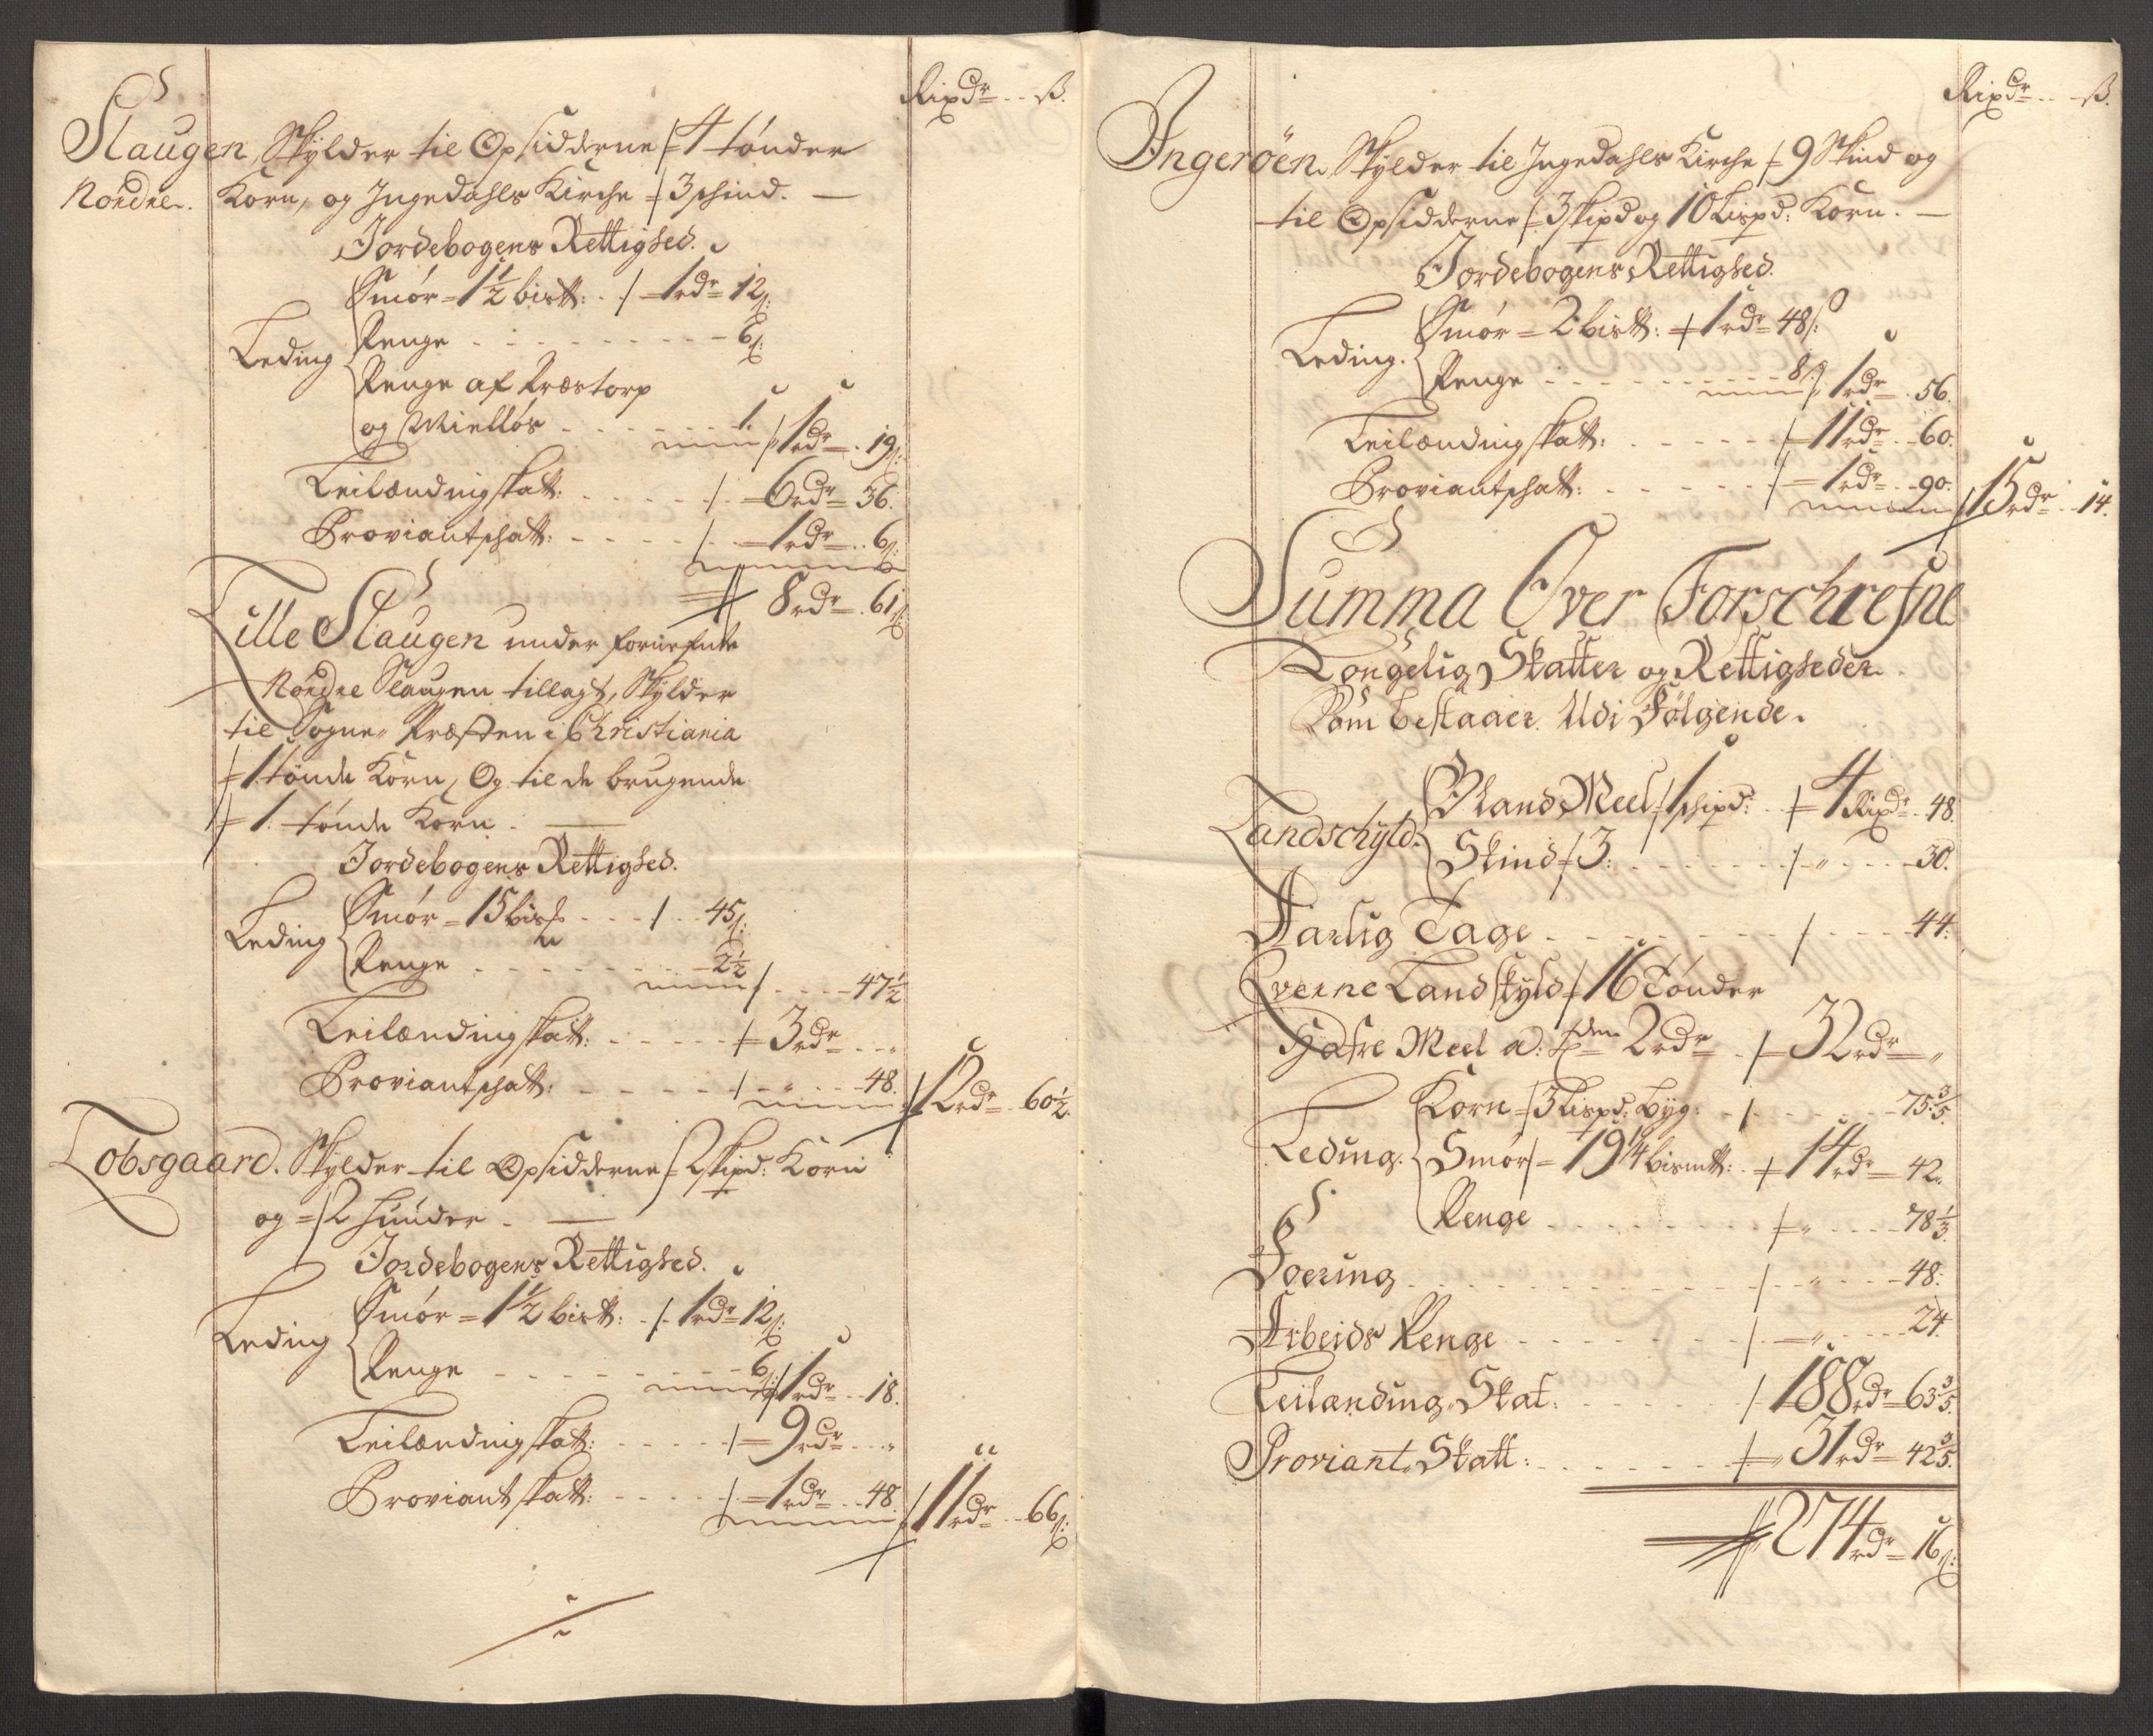 Rixdr ß.
Slaugen, Skylder til Opsidderne 4 tønder
Nordre. Korn, og Ingedahls Kirche 3 schind.
Jordebogens Rettighed.
Leding
Smør = 1½ bistt: 1rdr 12ß
Penge 6ß
Penge af Præstorp
og Mielløs 1
1rdr 19ß
Leilændingskatt: 6rdr 36.
Proviantschatt: 1rdr 6ß
8rdr 61ß
Lille Slaugen under fornefnte
Nordre Slaugen tillagt, Skylder
til Sogne Præsten i Christiania
1 tønde Korn, Og til de brugende
1. tønde Korn.
Jordebogens Rettighed.
Leding
Smør = 15 bis 45ß
Penge 2½
47½
Leilændingskatt: 3rdr "
Proviantschatt: " 48.
12rdr 60½.
Lobsgaard. Skylder til Opsidderne 2 skipd: Korn
og 2 huuder.
Jordebogens Rettighed.
Leding
Smør = 1½ bistt: 1rdr 12ß
Penge 6ß
1rdr 18.
Leilændingskatt: 9rdr "
Proviantskatt: 1rdr 48.
11rdr 66ß
Rixdr ß.
Ingerøen. Skylder til Ingedahls Kirche 9 Skind og
til Opsidderne 3 skipd og 10 Lispd: Korn.
Jordebogens Rettighed.
Leding.
Smør = 2 bistt: 1rdr 48ß
Penge 8ß
1rdr 56.
Leilændingskatt: 11rdr 60.
Proviantschatt: 1rdr 90.
15rdr 14.
Summa Over Forschrefne
Kongelig Skatter og Rettigheder
Som bestaaer Udi Følgende.
Landschyld.
Bland Meel 1 schipd: 4 Rixdr 48.
Skind 3: " 30.
Aarlig Tage 44.
Qverne Landskyld 16 Tønder
Hafre Meel a: tden 2rdr 32rdr "
Leding.
Korn = 3 Lispd: byg: 75 3/5
Smør = 19 1/4 bismtt: 14rdr 42.
Penge " 78 1/3.
Foering " 48:
Arbeids Penge " 24.
Leilanding Skat: 188rdr 63 3/5.
Proviant Skatt: 31rdr 42 3/5.
274rdr 16ß